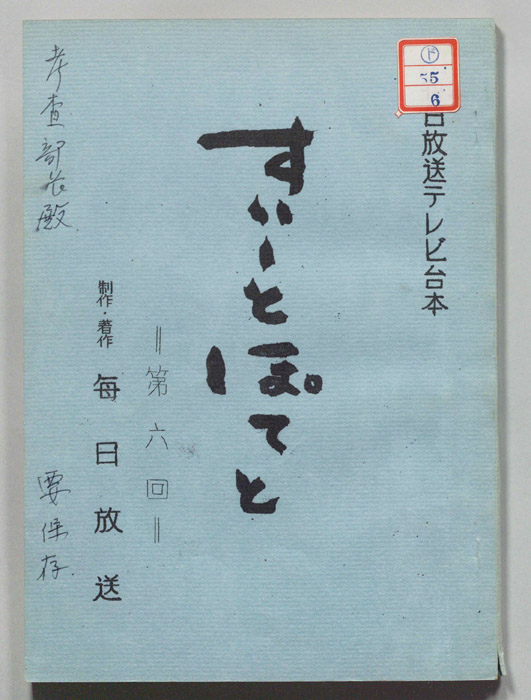 ド
55
6
日放送テレビ台本
すいーとぽてと
＝第六回＝
制作・著作 毎日放送
考査部長殿
要保存